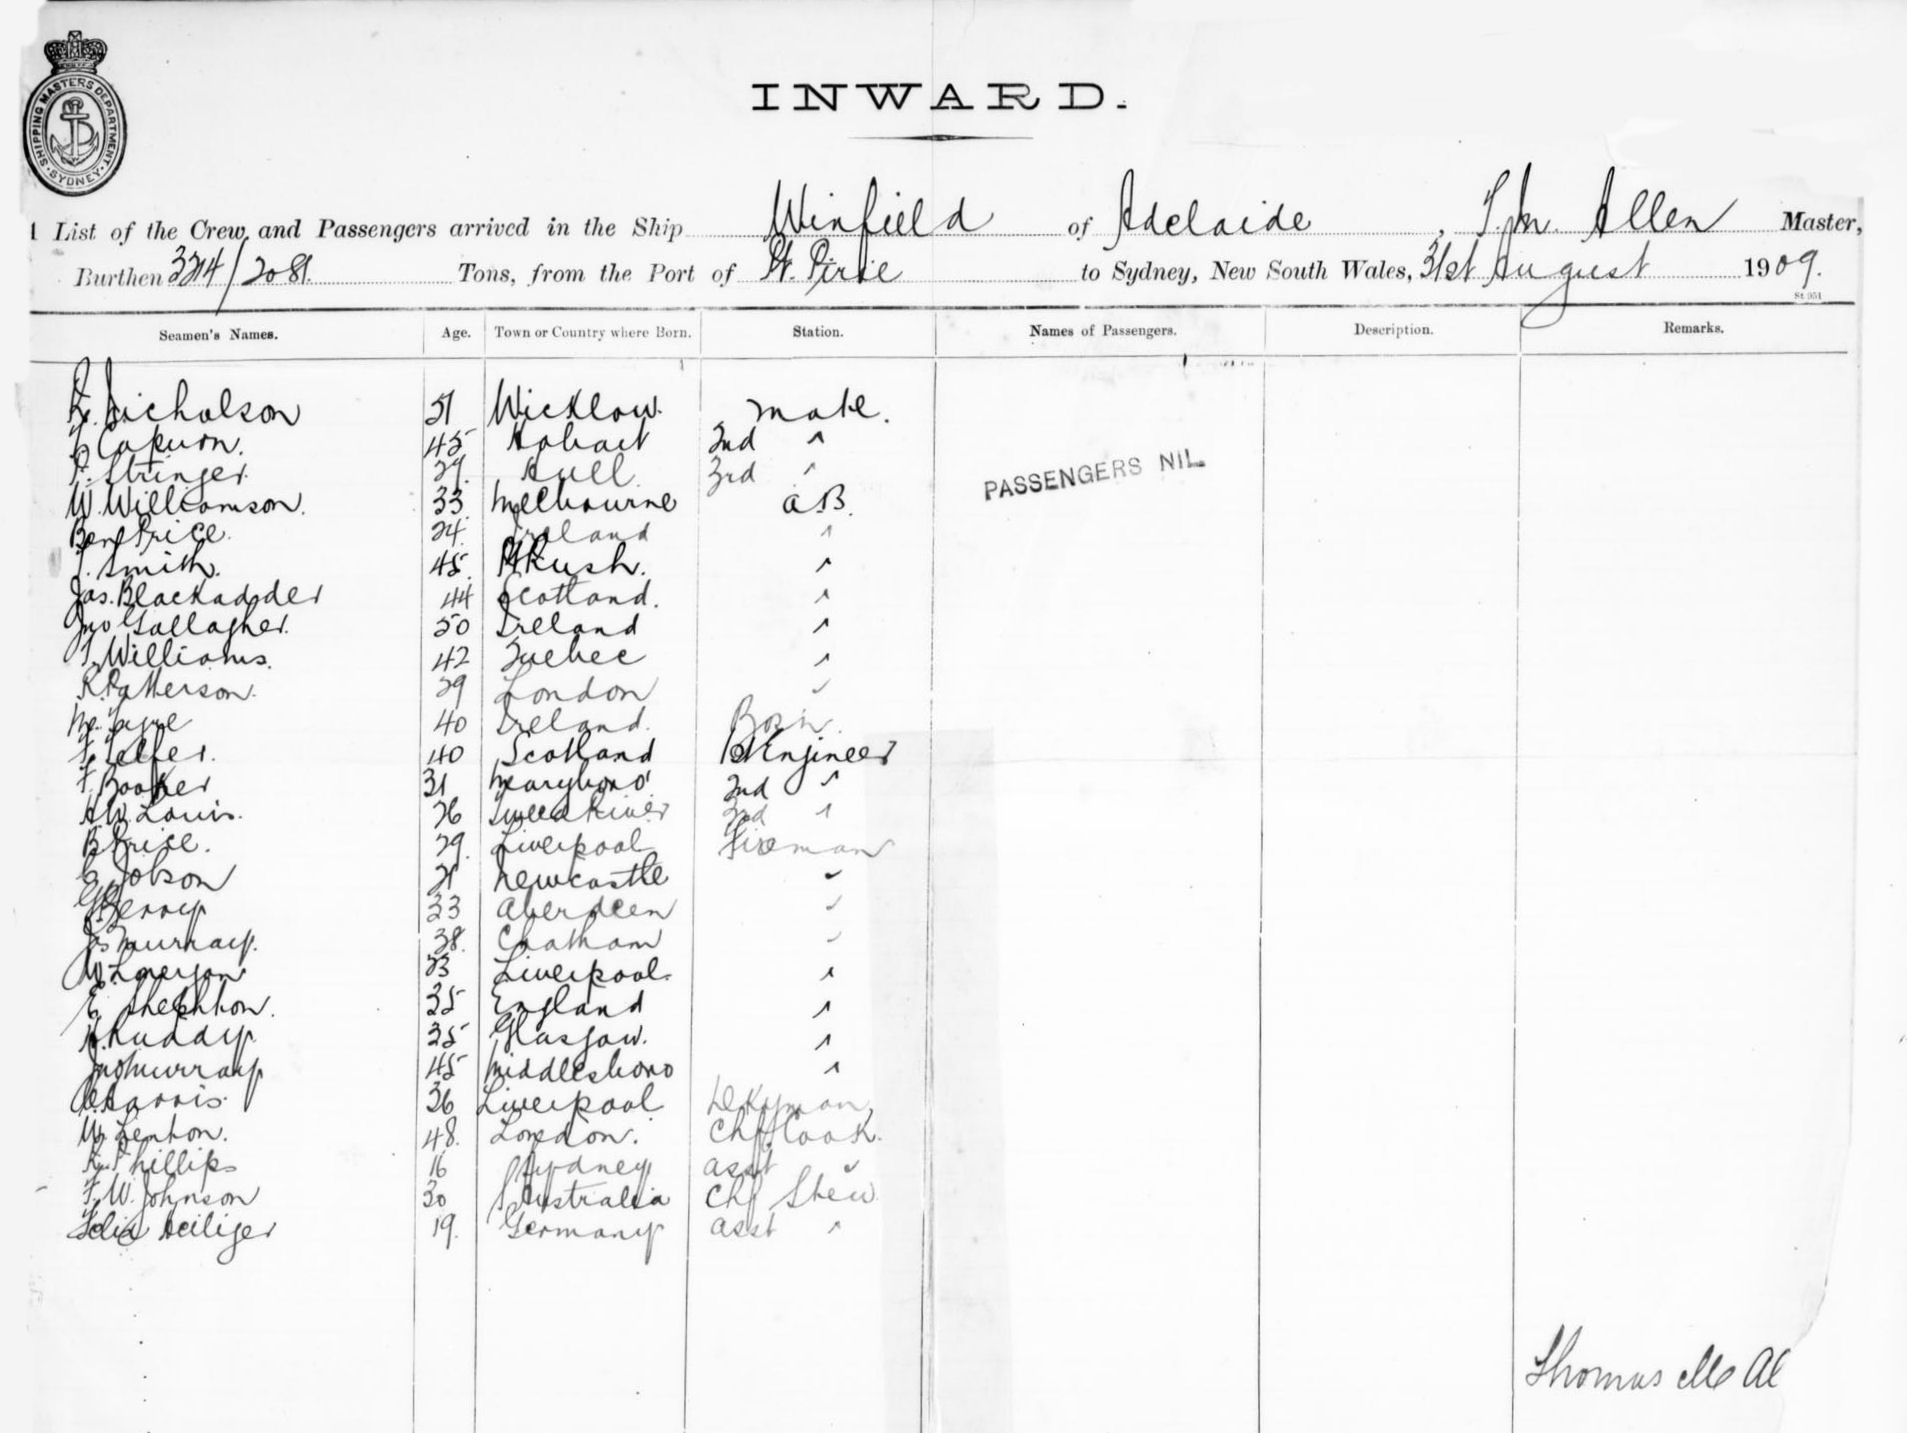 SHIPPING MASTERS DEPARTMENT. SYDNEY.
INWARD.
List of the Crew and Passengers arrived in the Ship Winfield of Adelaide, T. M. Allen Master,
Burthen 3214/2081. Tons, from the Port of Pt. Pirie to Sydney, New South Wales, 31st August 1909.
St 951
Seamen's Names. Age. Town or Country where Born. Station. Names of Passengers. Description. Remarks.
Nicholson 51 Wicklow. Mate.
Capurn. 45 Hobart 2nd "
Stringer. 29. Hull 3rd "
W. Williamson. 33 Melbourne A.B.
Ben Price. 24. Ireland "
Smith. 45. Rush. "
Jas. Blackadder 44 Scotland. "
Jno Gallagher. 50 Ireland "
T. Williams. 42 Quebec "
R. Patterson. 29 London "
40 Ireland. Bosn.
Telfer. 40 Scotland 1st Engineer
F. Booker 31 Maryboro' 2nd "
A.W. Louis. 26 Tweed River 3rd "
B. Price. 29. Liverpool Fireman
Jobson 21 Newcastle "
Berry 33 Aberdeen "
Jas Murray. 38. Chatham "
W. 23 Liverpool. "
E. 35 England "
Ruddy 35 Glasgow. "
Jno Murray 45 Middlesboro "
Harris. 36 Liverpool Dkyman
W. Lenton. 48. London. Chf Cook.
Phillips 16 Sydney asst "
F. W. Johnson 30 S Australia Chf Stew
Felix Heiliger 19. Germany asst "
PASSENGERS NIL
Thomas Mc Al